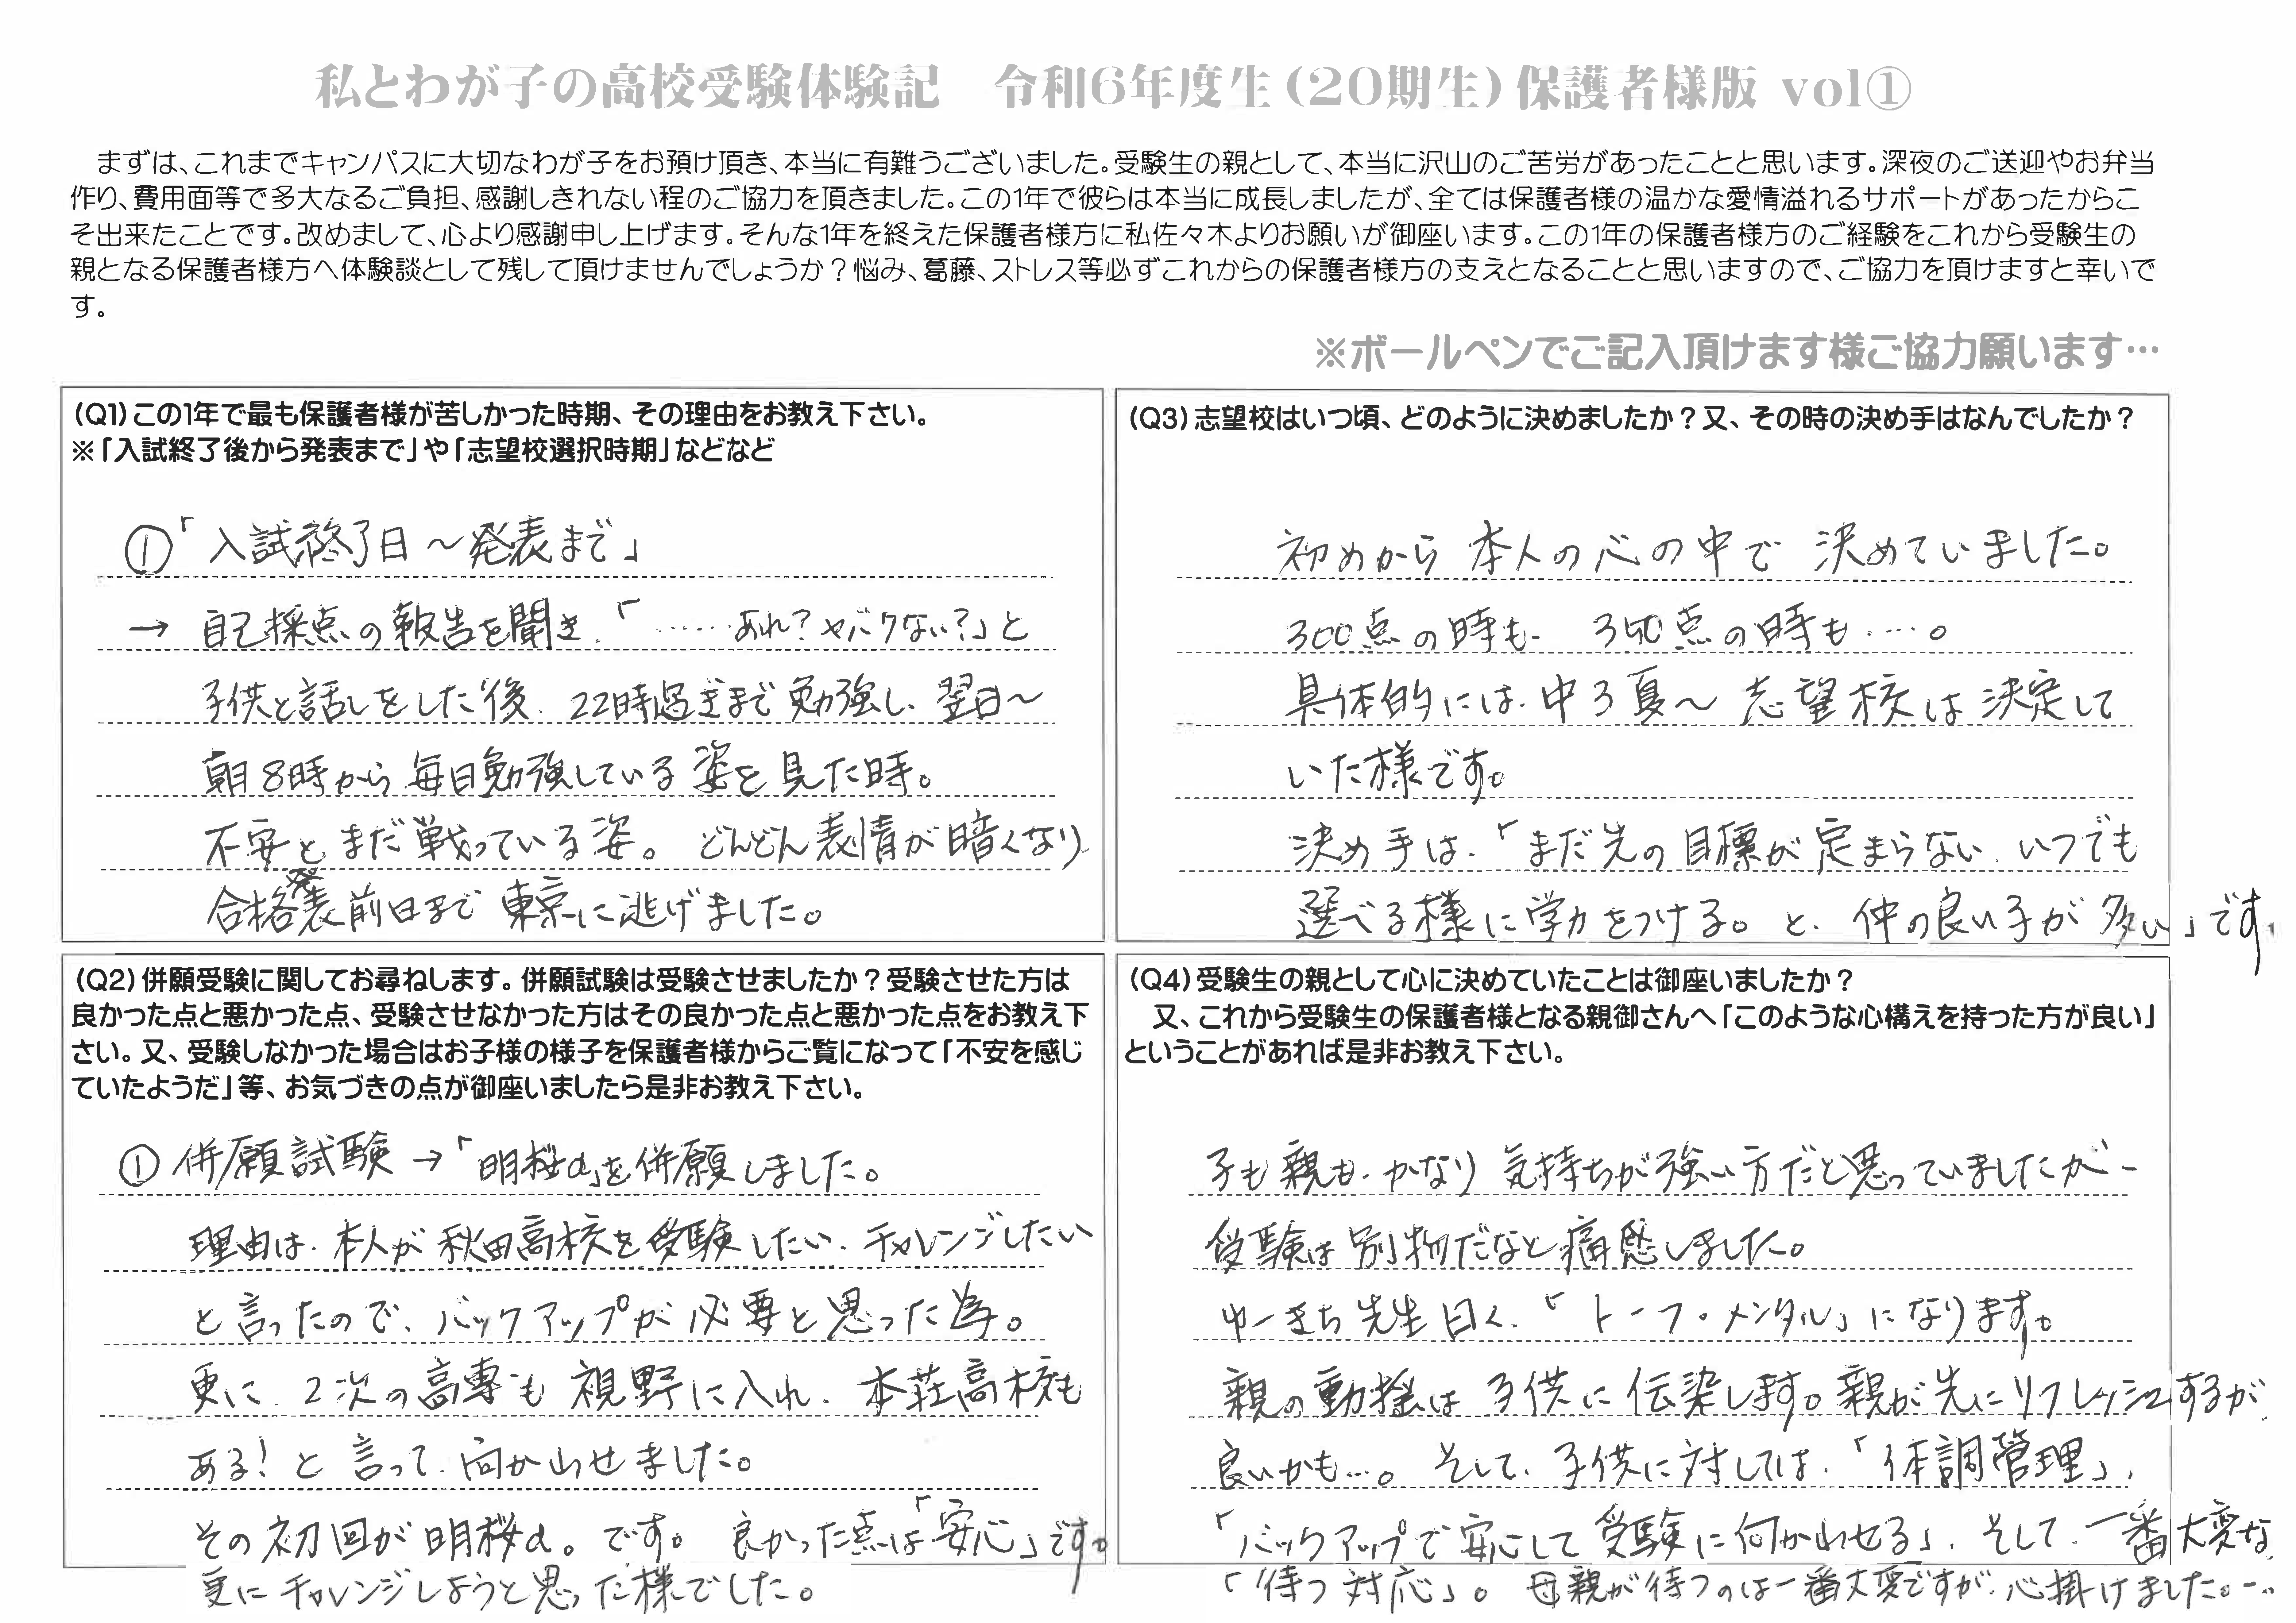 私とわが子の高校受験体験記　令和6年度生（20期生）保護者様版 vol①
まずは、これまでキャンパスに大切なわが子をお預け頂き、本当に有難うございました。受験生の親として、本当に沢山のご苦労があったことと思います。深夜のご送迎やお弁当
作り、費用面等で多大なるご負担、感謝しきれない程のご協力を頂きました。この1年で彼らは本当に成長しましたが、全ては保護者様の温かな愛情溢れるサポートがあったからこ
そ出来たことです。改めまして、心より感謝申し上げます。そんな1年を終えた保護者様方に私佐々木よりお願いが御座います。この1年の保護者様方のご経験をこれから受験生の
親となる保護者様方へ体験談として残して頂けませんでしょうか？悩み、葛藤、ストレス等必ずこれからの保護者様方の支えとなることと思いますので、ご協力を頂けますと幸いで
す。
※ボールペンでご記入頂けます様ご協力願います…
（Q1）この1年で最も保護者様が苦しかった時期、その理由をお教え下さい。
※「入試終了後から発表まで」や「志望校選択時期」などなど
①「入試終了日～発表まで」
→ 自己採点の報告を聞き、「……あれ？ヤバクない？」と
子供と話しをした後、22時過ぎまで勉強し、翌日～
朝8時から毎日勉強している姿を見た時。
不安とまだ戦っている姿。どんどん表情が暗くなり
合格発表前日まで東京に逃げました。
（Q2）併願受験に関してお尋ねします。併願試験は受験させましたか？受験させた方は
良かった点と悪かった点、受験させなかった方はその良かった点と悪かった点をお教え下
さい。又、受験しなかった場合はお子様の様子を保護者様からご覧になって「不安を感じ
ていたようだ」等、お気づきの点が御座いましたら是非お教え下さい。
①併願試験→「明桜α」を併願しました。
理由は、本人が秋田高校を受験したい、チャレンジしたい
と言ったので、バックアップが必要と思った為。
更に、2次の高専も視野に入れ、本荘高校も
ある！と言って、向かわせました。
その初回が明桜α。です。良かった点は「安心」です。
更にチャレンジしようと思った様でした。
（Q3）志望校はいつ頃、どのように決めましたか？又、その時の決め手はなんでしたか？
初めから本人の心の中で決めていました。
300点の時も、350点の時も…。
具体的には、中3夏～志望校は決定して
いた様です。
決め手は、「まだ先の目標が定まらない、いつでも
選べる様に学力をつける。と、仲の良い子が多い」です。
（Q4）受験生の親として心に決めていたことは御座いましたか？
又、これから受験生の保護者様となる親御さんへ「このような心構えを持った方が良い」
ということがあれば是非お教え下さい。
子も親も、かなり気持ちが強い方だと思っていましたが、
受験は別物だなと痛感しました。
ゆーきち先生曰く、「トーフ・メンタル」になります。
親の動揺は子供に伝染します。親が先にリフレッシュするが、
良いかも…。そして、子供に対しては、「体調管理」、
「バックアップで安心して受験に向かわせる」、そして、一番大変な
「待つ対応」。母親が待つのは一番大変ですが、心掛けました。…